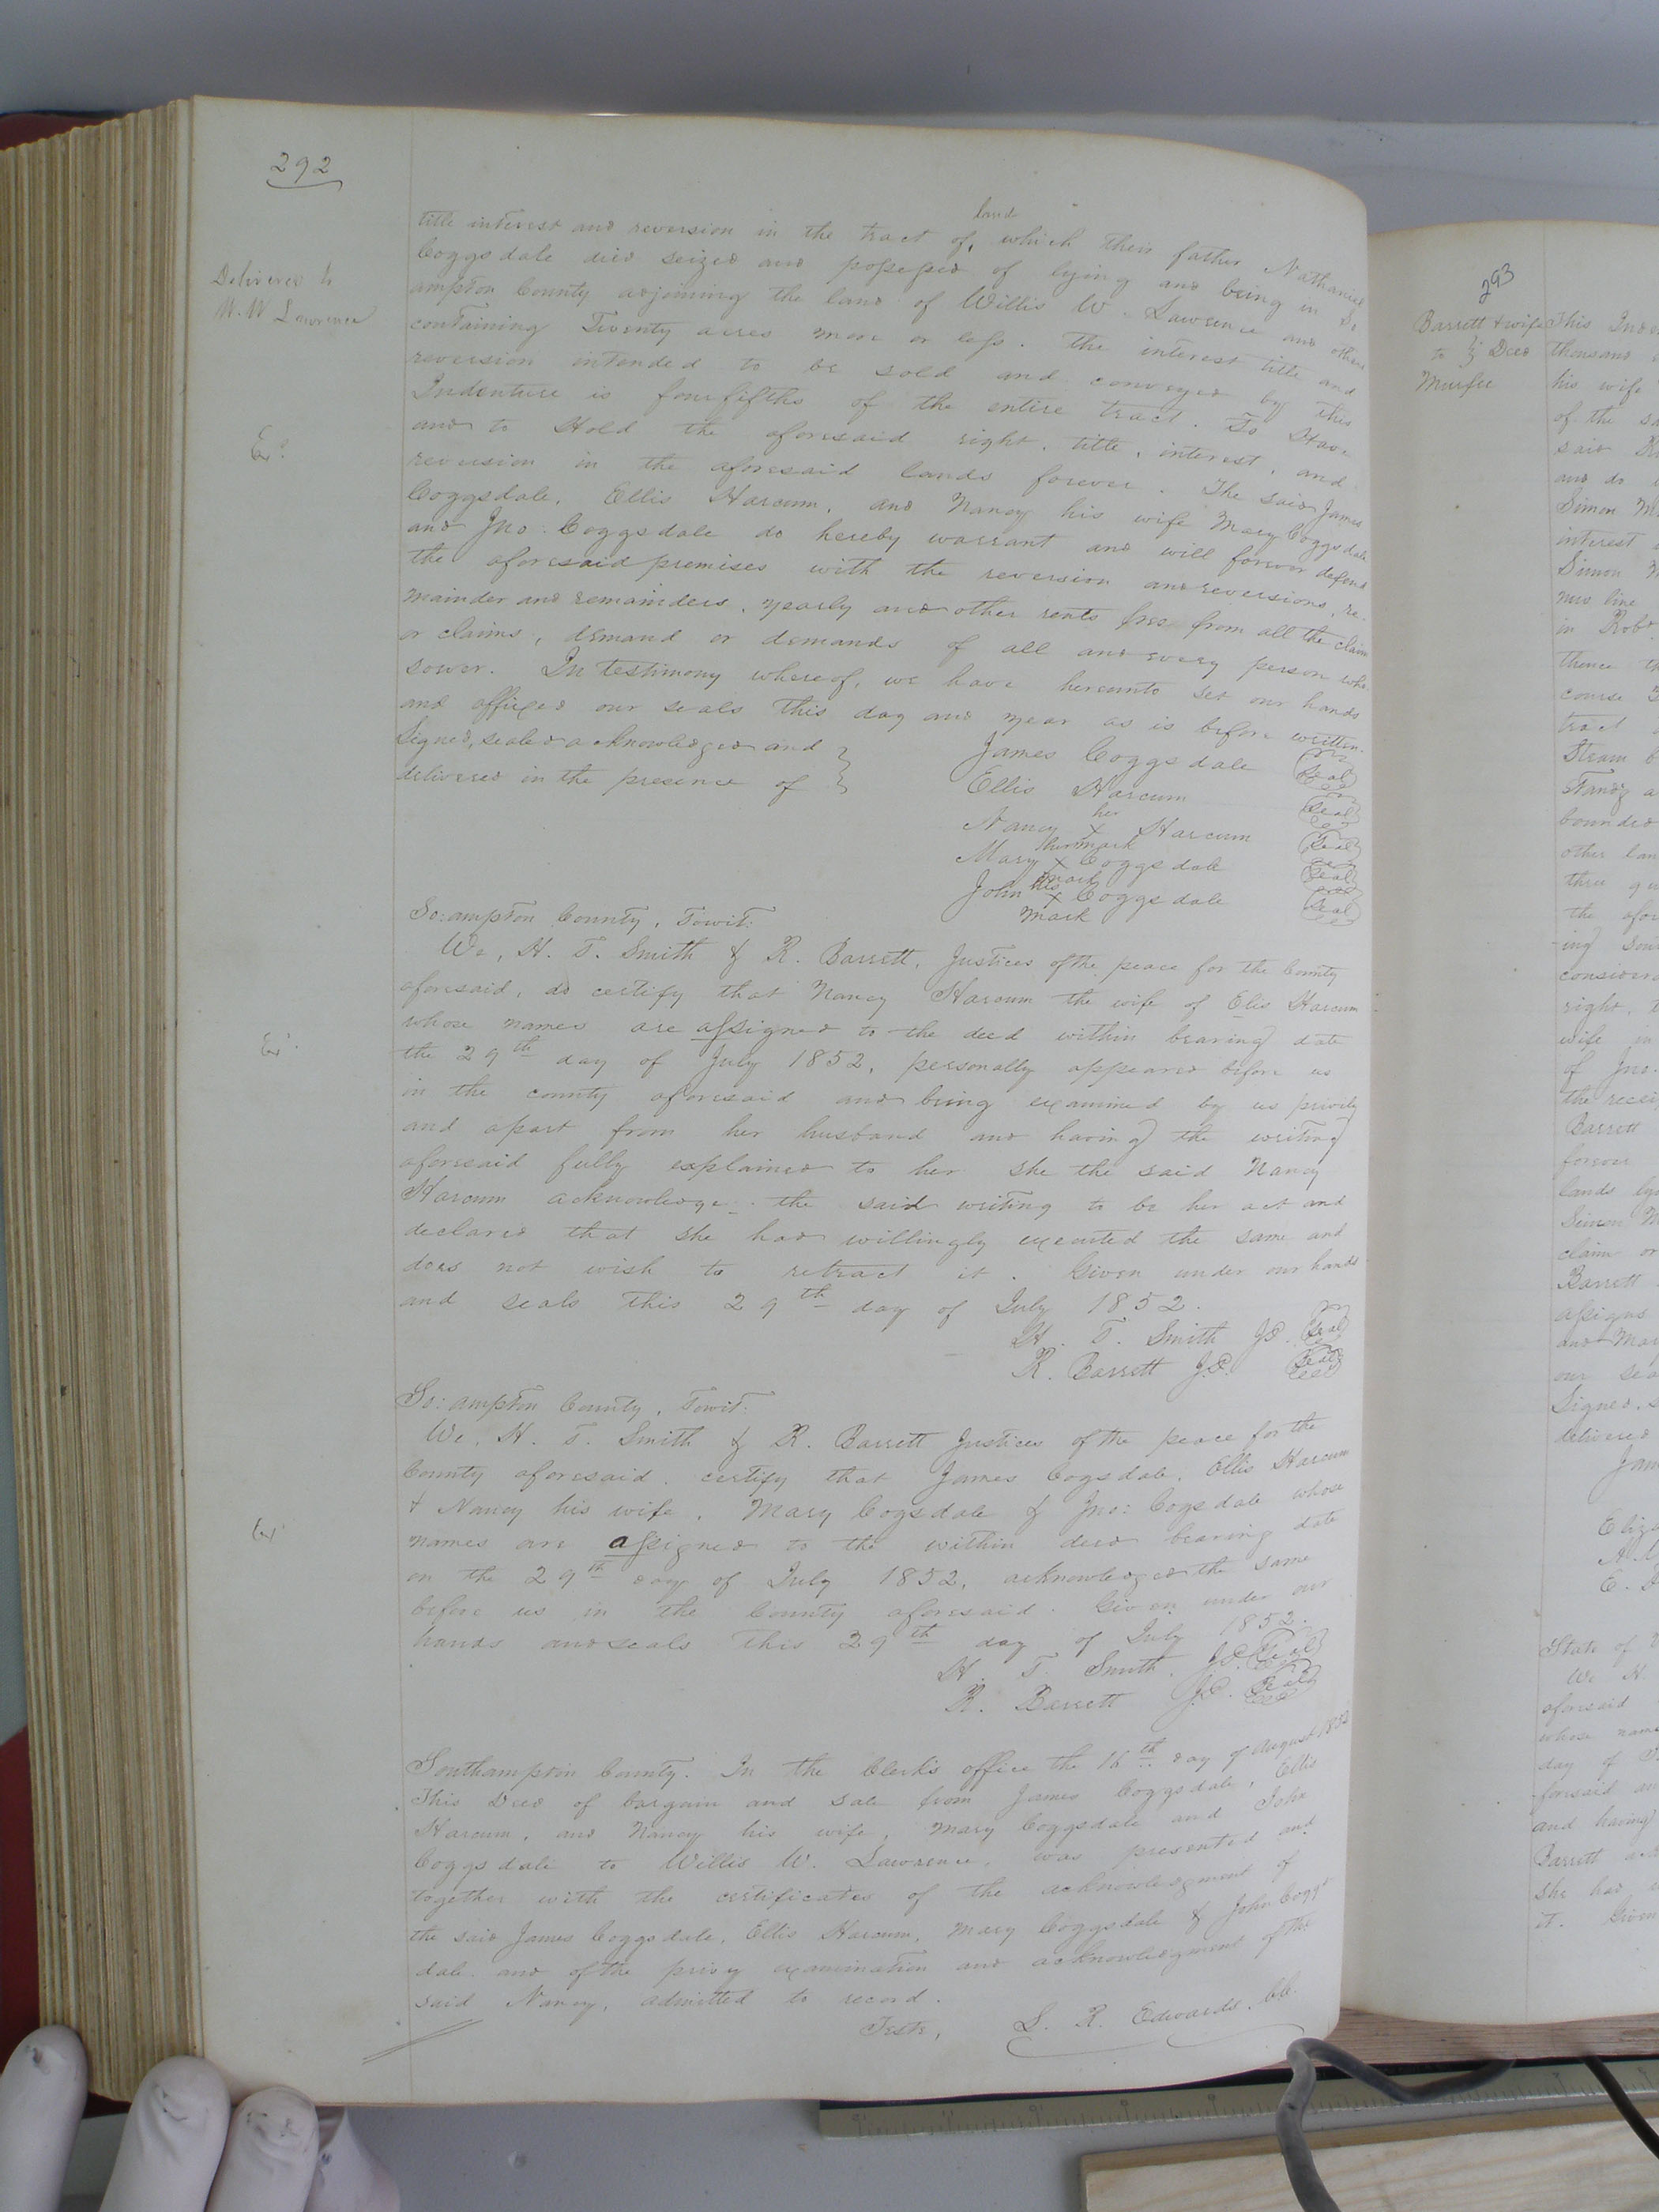 292
Delivered to
W. W Lawrence
Ex:
Ex:
Ex:
land
title interest and reversion in the tract of, which their father Nathaniel
Coggsdale died seized and possessed of lying and being in So
ampton County adjoining the land of Willis W. Lawrence and others
containing Twenty acres more or less. The interest title and
reversion intended to be sold and conveyed by this
Indenture is four fifths of the entire tract. To Have
and to Hold the aforesaid right, title, interest, and
reversion in the aforesaid lands forever. The said James
Coggsdale, Ellis Harcum, and Nancy his wife Mary Coggsdale
and Jno. Coggsdale do hereby warrant and will forever defend
the aforesaid premises with the reversion and reversions, re-
mainder and remainders, yearly and other rents free from all the claim
or claims, demand or demands of all and every person who-
sower. In testimony whereof, we have hereunto set our hands
and affixed our seals this day and year as is before written.
Signed, sealed acknowledged and }
delivered in the presence of }
James Coggsdale Seal
Ellis Harcum Seal
her
Nancy X Harcum Seal
her mark
Mary X Coggsdale Seal
mark
his
John X Coggsdale Seal
mark
So: ampton County, Towit:
We, H. T. Smith & R. Barrett, Justices of the peace for the County
aforesaid, do certify that Nancy Harcum the wife of Elis Harcum
whose names are assigned to the deed within bearing date
the 29th day of July 1852, personally appeared before us
in the county aforesaid and being examined by us privily
and apart from her husband and having the writing
aforesaid fully explained to her she the said Nancy
Harcum acknowledge the said writing to be her act and
declared that she had willingly executed the same and
does not wish to retract it. Given under our hands
and seals this 29th day of July 1852.
H. T. Smith J.P. Seal
R. Barrett J.P. Seal
So: ampton County, Towit:
We, H. T. Smith & R. Barrett Justices of the peace for the
County aforesaid, certify that James Cogsdale, Ellis Harcum
& Nancy his wife, Mary Cogsdale & Jno: Cogsdale whose
names are assigned to the within deed bearing date
on the 29th day of July 1852, acknowledged the same
before us in the County aforesaid. Given under our
hands and seals this 29th day of July 1852.
H. T. Smith. J.P. Seal
R. Barrett J.P. Seal
Southampton County. In the Clerk's office the 16th day of August 1852
This Deed of bargain and sale from James Coggsdale, Ellis
Harcum, and Nancy his wife, Mary Coggsdale and John
Coggsdale to Willis W. Lawrence, was presented and
together with the certificates of the acknowledgment of
the said James Coggsdale, Ellis Harcum, Mary Coggsdale & John Coggs
dale. and of the privy examination and acknowledgment of the
said Nancy, admitted to record.
Teste, L. R. Edwards. CC.
293
Barrett & wife
to } Deed
Murfee
This Inde
thousand
his wife
of the sa
said
and do
Simon M
interest
Simon M
new line
in Robt
thence th
course
tract
Steam
Stands a
bounded
other lan
three qu
the afor
ing
consider
right, t
wife in
of Jno.
the recei
Barrett
forever
lands ly
Simon M
claim or
Barrett
assigns
and Mar
our sea
Signed, s
delivered
Jam
Eliza
State of V
We H.
aforesaid
whose name
day of
foresaid an
and having
Barrett ack
she had w
it. Given